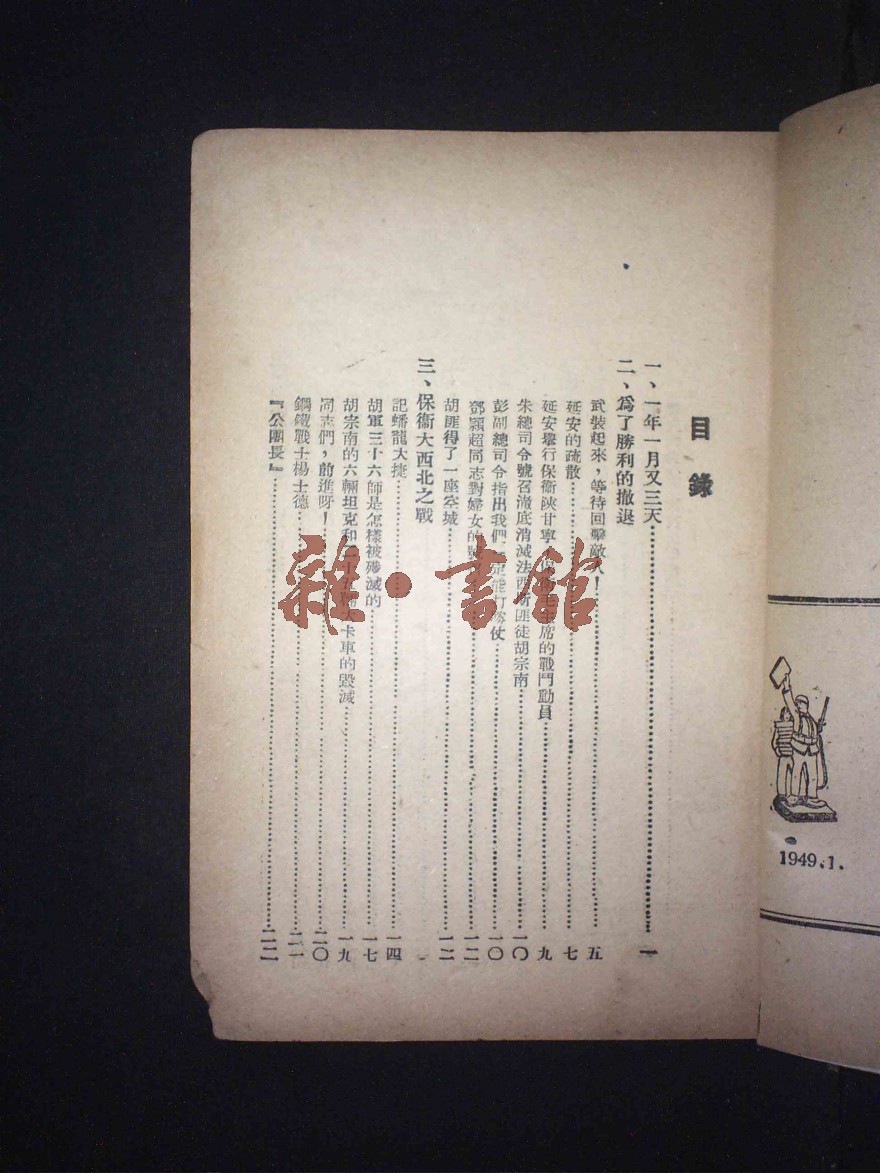 目錄
一、一年一月又三天…………一
二、爲了勝利的撤退
武裝起來，等待回擊敵人！…………五
延安的疏散…………七
延安舉行保衞陝甘寧 主席的戰鬥動員…………九
朱總司令號召澈底消滅法西斯匪徒胡宗南…………一〇
彭副總司令指出我們 能打 仗…………一〇
鄧穎超同志對婦女的 …………一二
胡匪得了一座空城…………一二
三、保衞大西北之戰
記蟠龍大捷…………一四
胡軍三十六師是怎樣被殲滅的…………一七
胡宗南的六輛坦克和 卡車的毀滅…………一九
同志們，前進呀！…………二〇
鋼鐵戰士楊士德…………二一
『公團長』…………二二
雜·書館
1949.1.